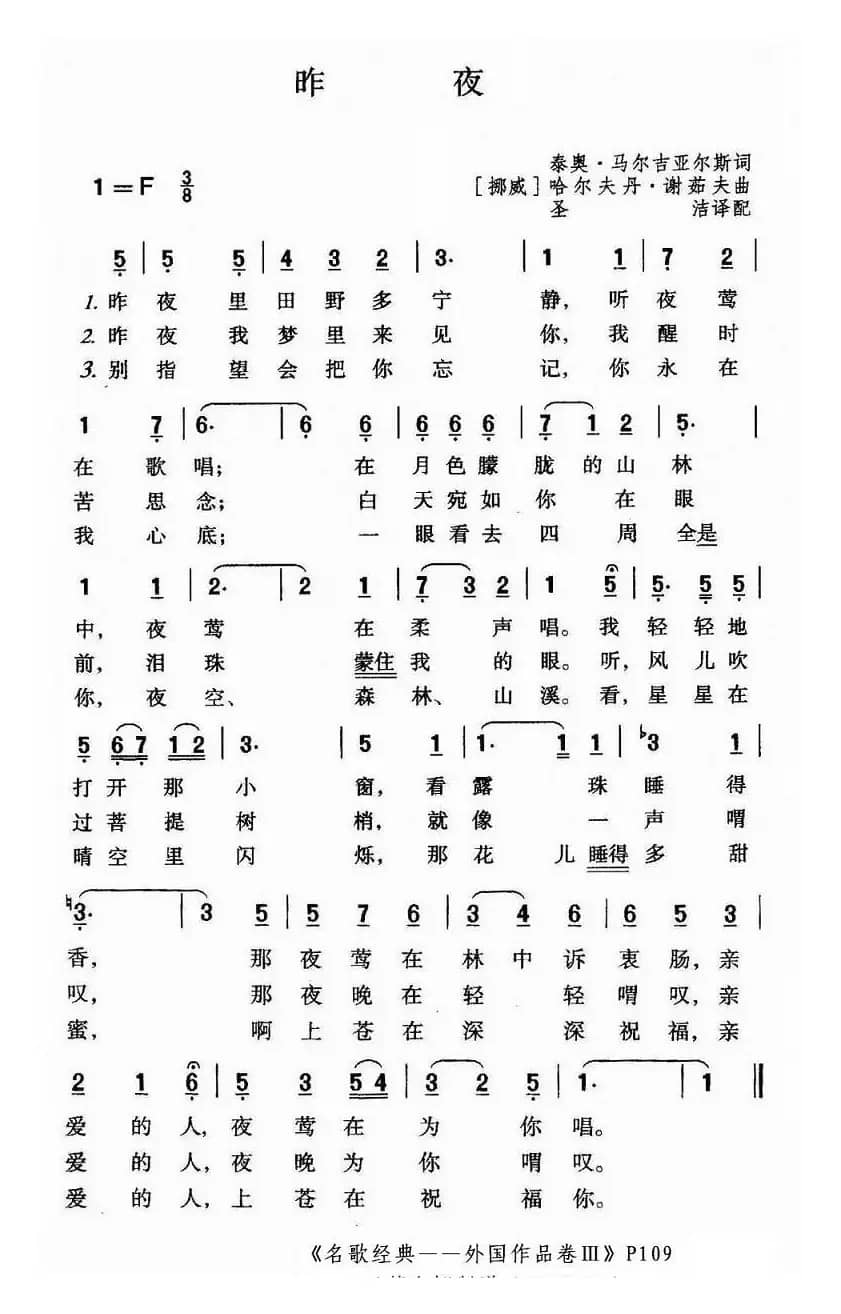 昨 夜
泰奥·马尔吉亚尔斯词
1=F 3/8 [挪威]哈尔夫丹·谢茹夫曲
圣 洁译配
5 | 5 5 | 4 3 2 | 3· | 1 1 | 7 2 |
1. 昨 夜 里 田 野 多 宁 静, 听 夜 莺
2. 昨 夜 我 梦 里 来 见 你, 我 醒 时
3. 别 指 望 会 把 你 忘 记, 你 永 在
1 7 | 6· | 6 6 | 6 6 6 | 7 1 2 | 5· |
在 歌 唱; 在 月 色 朦 胧 的 山 林
苦 思 念; 白 天 宛 如 你 在 眼
我 心 底; 一 眼 看 去 四 周 全是
1 1 | 2· | 2 1 | 7 3 2 | 1 5 | 5· 5 5 |
中, 夜 莺 在 柔 声 唱。 我 轻 轻 地
前, 泪 珠 蒙住 我 的 眼。 听, 风 儿 吹
你, 夜 空、 森 林、 山 溪。 看, 星 星 在
5 6 7 1 2 | 3· | 5 1 | 1· 1 1 | ♭3 1 |
打 开 那 小 窗, 看 露 珠 睡 得
过 菩 提 树 梢, 就 像 一 声 喟
晴 空 里 闪 烁, 那 花 儿 睡得 多 甜
♮3· | 3 5 | 5 7 6 | 3 4 6 | 6 5 3 |
香, 那 夜 莺 在 林 中 诉 衷 肠, 亲
叹, 那 夜 晚 在 轻 轻 喟 叹, 亲
蜜, 啊 上 苍 在 深 深 祝 福, 亲
2 1 6 | 5 3 5 4 | 3 2 5 | 1· | 1 ‖
爱 的 人, 夜 莺 在 为 你 唱。
爱 的 人, 夜 晚 为 你 喟 叹。
爱 的 人, 上 苍 在 祝 福 你。
《名歌经典——外国作品卷Ⅲ》P109